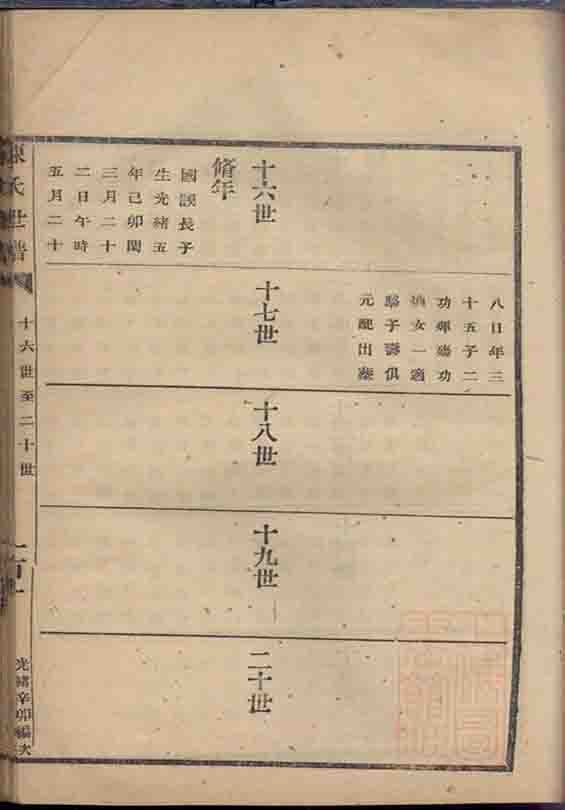 八日年三
十五子二
女一適
子壽俱
元配出
十六世
脩年
國謨長子
生光緒五
年己卯閏
三月二十
二日午時
五月二十
十七世
十八世
十九世
二十世
氏世譜
十六世至二十世
光緒辛卯編次